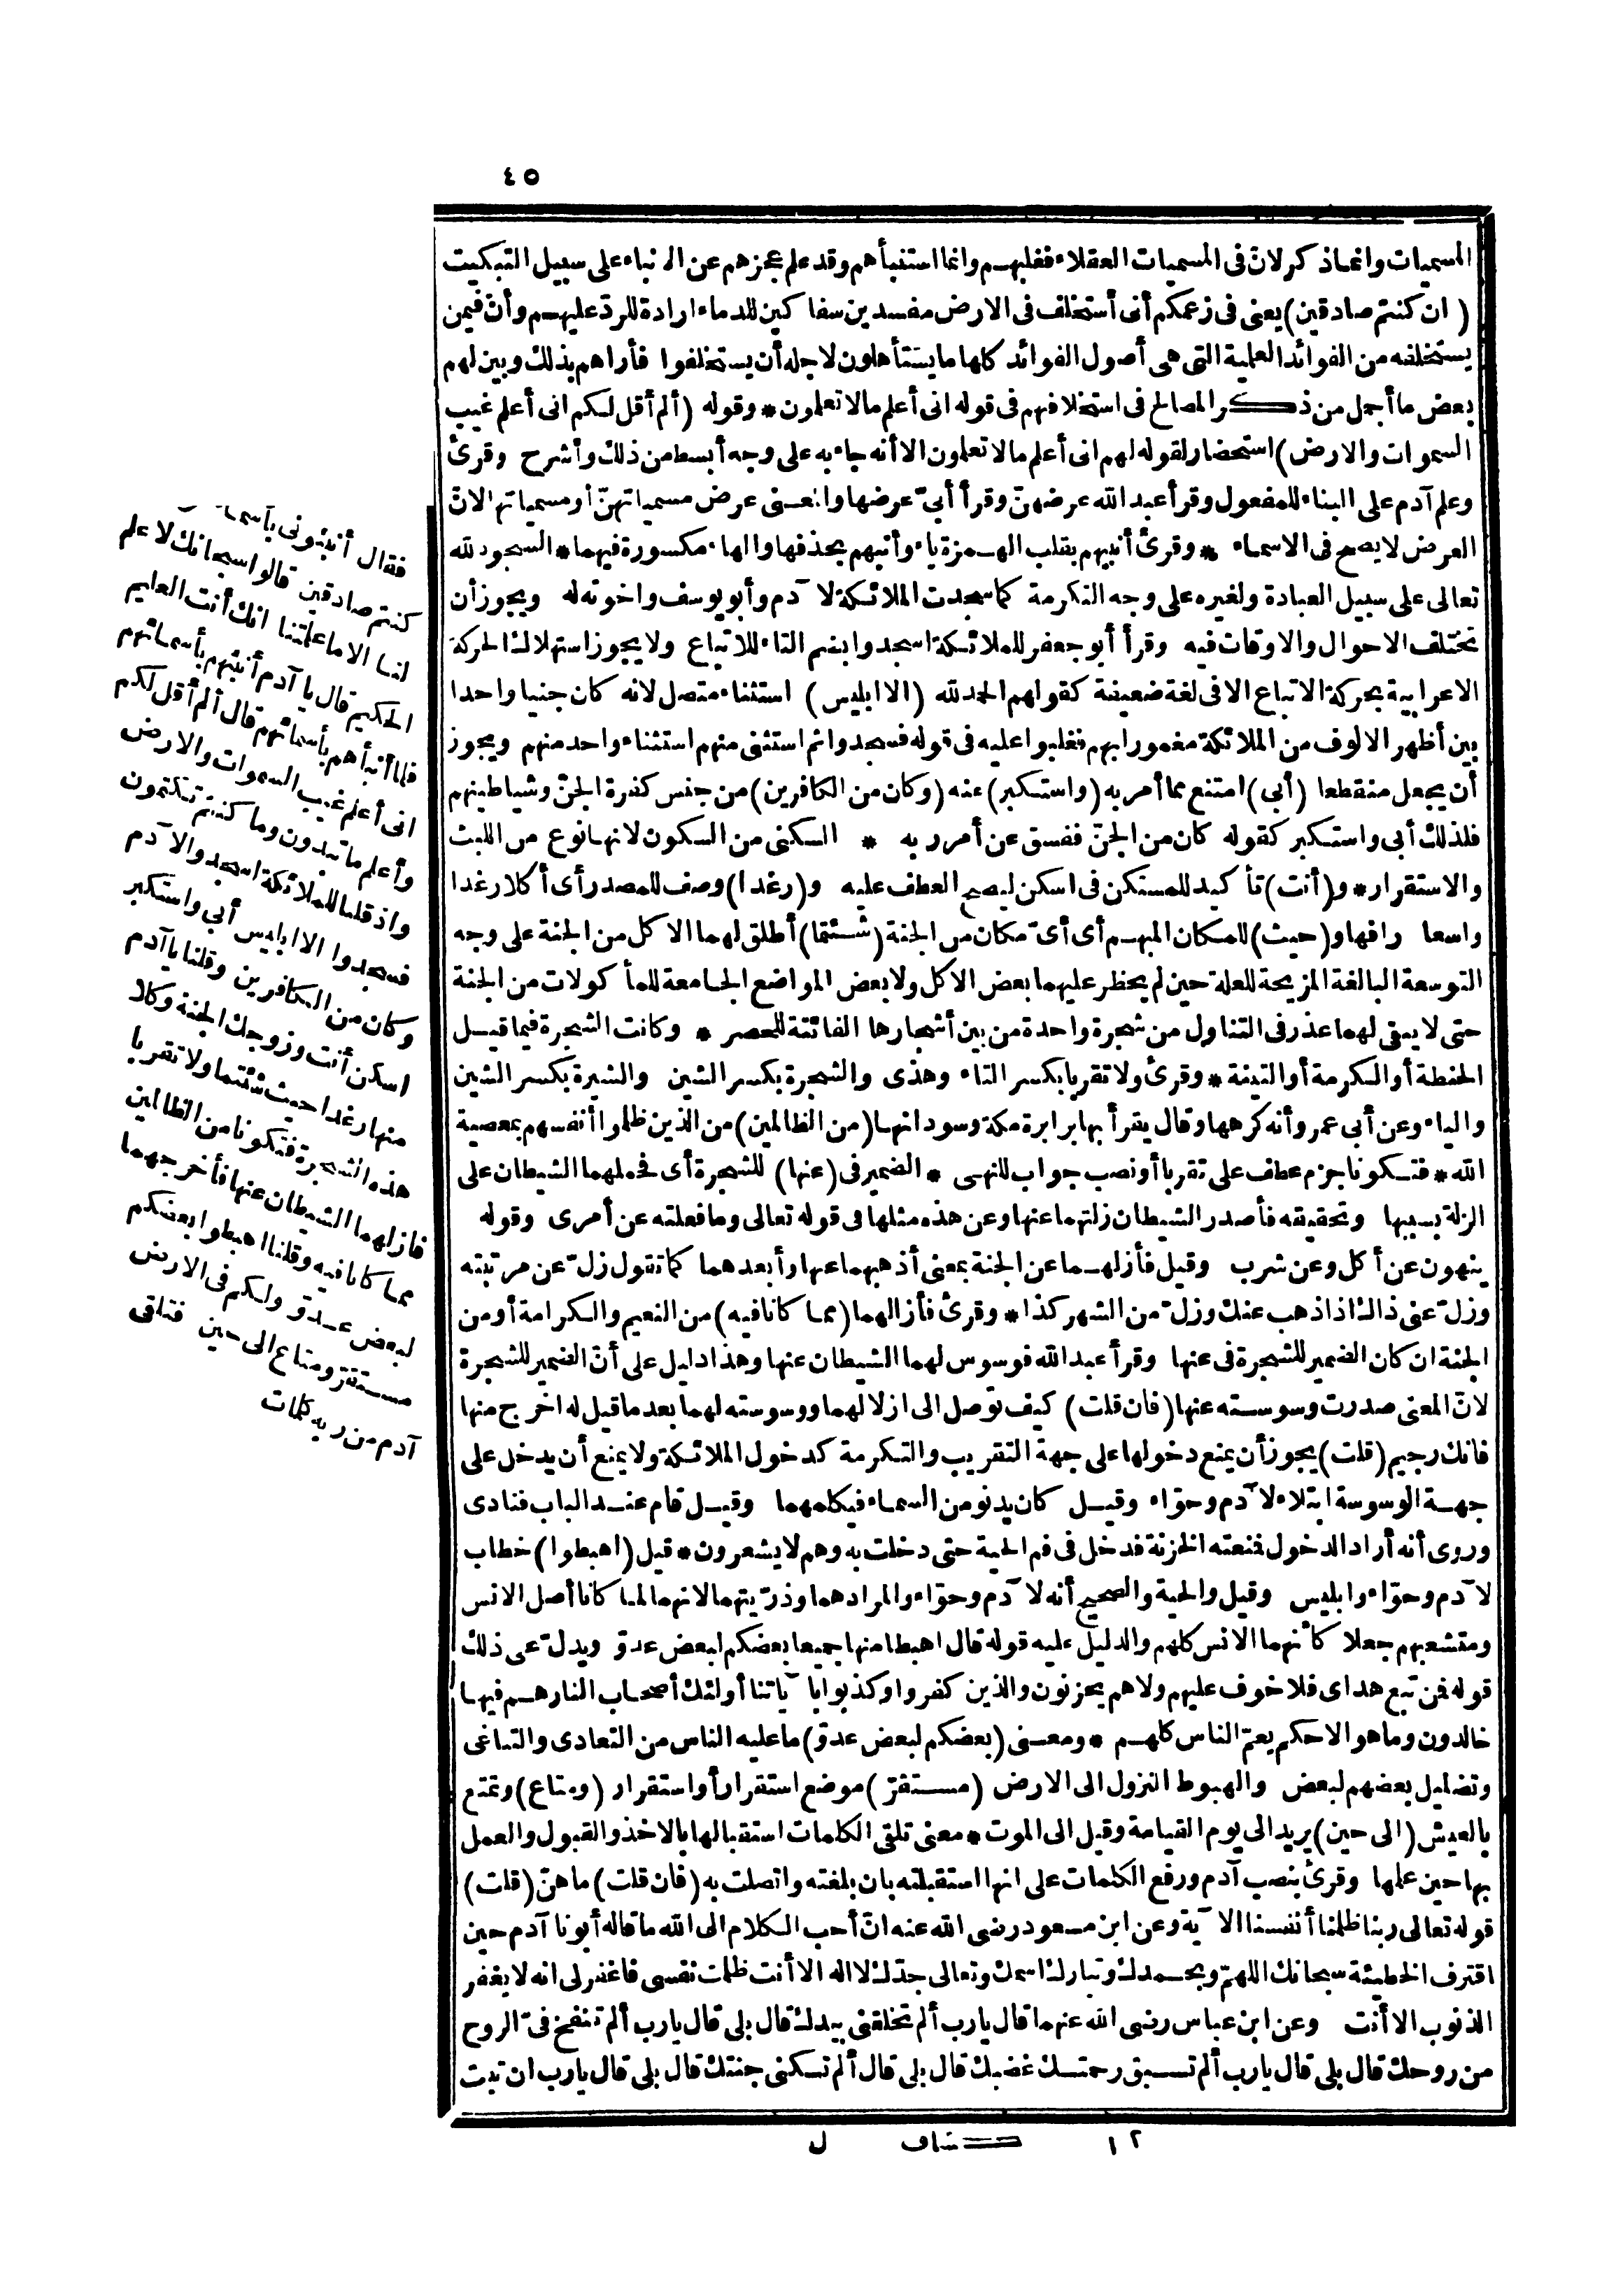 ٤٥
المسميات وانما ذكر لان فى المسميات العقلاء فغلبهم وانما استنبأهم وقد علم عجزهم عن الانباء على سبيل التبكيت
(ان كنتم صادقين) يعنى فى زعمكم أنى أستخلف فى الارض مفسدين سفاكين للدماء ارادة للردّ عليهم وأنّ فيمن
يستخلفه من الفوائد العلمية التى هى أصول الفوائد كلها ما يستأهلون لاجله أن يستخلفوا فأراهم بذلك وبين لهم
بعض ما أجمل من ذكر المصالح فى استخلافهم فى قوله انى أعلم مالا تعلمون * وقوله (ألم أقل لكم انى أعلم غيب
السموات والارض) استحضار لقوله لهم انى أعلم مالا تعلمون الا أنه جاء به على وجه أبسط من ذلك وأشرح وقرئ
وعلم آدم على البناء للمفعول وقرأ عبد الله عرضهنّ وقرأ أبىّ عرضها والمعنى عرض مسمياتهنّ أو مسمياتها لانّ
العرض لا يصح فى الاسماء * وقرئ أنبيهم بقلب الهمزة ياء وأنبهم بحذفها والهاء مكسورة فيهما * السجود لله
تعالى على سبيل العبادة ولغيره على وجه التكرمة كما سجدت الملائكة لآدم وأبو يوسف واخوته له ويجوز أن
تختلف الاحوال والاوقات فيه وقرأ أبو جعفر للملائكة اسجدوا بضم التاء للاتباع ولا يجوز استهلاك الحركة
الاعرابية بحركة الاتباع الا فى لغة ضعيفة كقولهم الحمد لله (الا ابليس) استثناء متصل لانه كان جنيا واحدا
بين أظهر الالوف من الملائكة مغمورا بهم فغلبوا عليه فى قوله فسجدوا ثم استثنى منهم استثناء واحد منهم ويجوز
أن يجعل منقطعا (أبى) امتنع مما أمر به (واستكبر) عنه (وكان من الكافرين) من جنس كفرة الجنّ وشياطينهم
فلذلك أبى واستكبر كقوله كان من الجنّ ففسق عن أمر ربه * السكنى من السكون لانها نوع من اللبث
والاستقرار * و(أنت) تأكيد للمستكن فى اسكن ليصح العطف عليه و(رغدا) وصف للمصدر أى أكلا رغدا
واسعا رافها و(حيث) للمكان المبهم أى أىّ مكان من الجنة (شئتما) أطلق لهما الاكل من الجنة على وجه
التوسعة البالغة المزيحة للعلة حين لم يحظر عليهما بعض الاكل ولا بعض المواضع الجامعة للمأكولات من الجنة
حتى لا يبقى لهما عذر فى التناول من شجرة واحدة من بين أشجارها الفائتة للحصر * وكانت الشجرة فيما قيل
الحنطة أو الكرمة أو التينة * وقرئ ولا تقربا بكسر التاء وهذى والشجرة بكسر الشين والشيرة بكسر الشين
والياء وعن أبى عمرو أنه كرهها وقال يقرأ بها برابرة مكة وسودانها (من الظالمين) من الذين ظلموا أنفسهم بمعصية
الله * فتكونا جزم عطف على تقربا أو نصب جواب للنهى * الضمير فى (عنها) للشجرة أى فحملهما الشيطان على
الزلة بسببها وتحقيقه فأصدر الشيطان زلتهما عنها وعن هذه مثلها فى قوله تعالى وما فعلته عن أمرى وقوله
ينهون عن أكل وعن شرب وقيل فأزلهما عن الجنة بمعنى أذهبهما عنها وأبعدهما كما تقول زلّ عن مرتبته
وزلّ عنى ذاك اذا ذهب عنك وزلّ من الشهر كذا * وقرئ فأزالهما (مما كانا فيه) من النعيم والكرامة أو من
الجنة ان كان الضمير للشجرة فى عنها وقرأ عبد الله فوسوس لهما الشيطان عنها وهذا دليل على أنّ الضمير للشجرة
لانّ المعنى صدرت وسوسته عنها (فان قلت) كيف توصل الى ازلالهما ووسوسته لهما بعد ما قيل له اخرج منها
فانك رجيم (قلت) يجوز أن يمنع دخولها على جهة التقريب والتكرمة كدخول الملائكة ولا يمنع أن يدخل على
جهة الوسوسة ابتلاء لآدم وحوّاء وقيل كان يدنو من السماء فيكلمهما وقيل قام عند الباب فنادى
وروى أنه أراد الدخول فمنعته الخزنة فدخل فى فم الحية حتى دخلت به وهم لا يشعرون * قيل (اهبطوا) خطاب
لآدم وحوّاء وابليس وقيل والحية والصحيح أنه لآدم وحوّاء والمراد هما وذرّيتهما لانهما لما كانا أصل الانس
ومتشعبهم جعلا كأنهما الانس كلهم والدليل عليه قوله قال اهبطا منها جميعا بعضكم لبعض عدوّ ويدلّ على ذلك
قوله فمن تبع هداى فلا خوف عليهم ولا هم يحزنون والذين كفروا وكذبوا بآياتنا أولئك أصحاب النار هم فيها
خالدون وما هو الا حكم يعمّ الناس كلهم * ومعنى (بعضكم لبعض عدوّ) ما عليه الناس من التعادى والتباغى
وتضليل بعضهم لبعض والهبوط النزول الى الارض (مستقرّ) موضع استقرار أو استقرار (ومتاع) وتمتع
بالعيش (الى حين) يريد الى يوم القيامة وقيل الى الموت * معنى تلقى الكلمات استقبالها بالاخذ والقبول والعمل
بها حين علمها وقرئ بنصب آدم ورفع الكلمات على انها استقبلته بان بلغته واتصلت به (فان قلت) ما هنّ (قلت)
قوله تعالى ربنا ظلمنا أنفسنا الآية وعن ابن مسعود رضى الله عنه انّ أحب الكلام الى الله ما قاله أبونا آدم حين
اقترف الخطيئة سبحانك اللهمّ وبحمدك وتبارك اسمك وتعالى جدّك لا اله الا أنت ظلمت نفسى فاغفر لى انه لا يغفر
الذنوب الا أنت وعن ابن عباس رضى الله عنهما قال يا رب ألم تخلقنى بيدك قال بلى قال يا رب ألم تنفخ فىّ الروح
من روحك قال بلى قال يا رب ألم تسبق رحمتك غضبك قال بلى قال ألم تسكنى جنتك قال بلى قال يا رب ان تبت
فقال أنبئونى بأسماء
كنتم صادقين قالوا سبحانك لا علم
لنا الا ما علمتنا انك أنت العليم
الحكيم قال يا آدم أنبئهم بأسمائهم
فلما أنبأهم بأسمائهم قال ألم أقل لكم
انى أعلم غيب السموات والارض
وأعلم ما تبدون وما كنتم تكتمون
واذ قلنا للملائكة اسجدوا لآدم
فسجدوا الا ابليس أبى واستكبر
وكان من الكافرين وقلنا يا آدم
اسكن أنت وزوجك الجنة وكلا
منها رغدا حيث شئتما ولا تقربا
هذه الشجرة فتكونا من الظالمين
فازلهما الشيطان عنها فأخرجهما
مما كانا فيه وقلنا اهبطوا بعضكم
لبعض عدوّ ولكم فى الارض
مستقرّ ومتاع الى حين فتلقى
آدم من ربه كلمات
١٢ كشاف ل